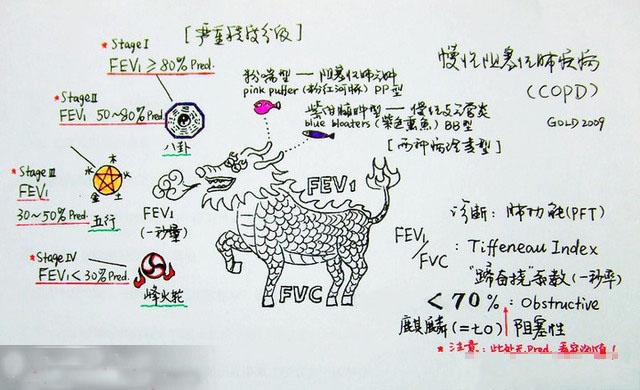 [严重程度分级]
* Stage I
FEV₁ ≥ 80% Pred.
* Stage II
FEV₁ 50~80% Pred.
八卦
* Stage III
FEV₁
30~50% Pred.
木
火
土
金
水
五行
* Stage IV
FEV₁ < 30% Pred.
烽火轮
FEV₁
(一秒量)
粉喘型 — 阻塞性肺气肿
pink puffer (粉红河豚) PP型
紫绀臃肿型 — 慢性支气管炎
blue bloaters (紫色熏鱼) BB型
[两种病理类型]
FEV₁
FVC
慢性阻塞性肺疾病
(COPD)
GOLD 2009
诊断: 肺功能(PFT)
FEV₁/FVC : Tiffeneau Index
系数(一秒率)
< 70% : Obstructive
麒麟(=to) 阻塞性
* 注意: 此处无Pred. 看实测值!